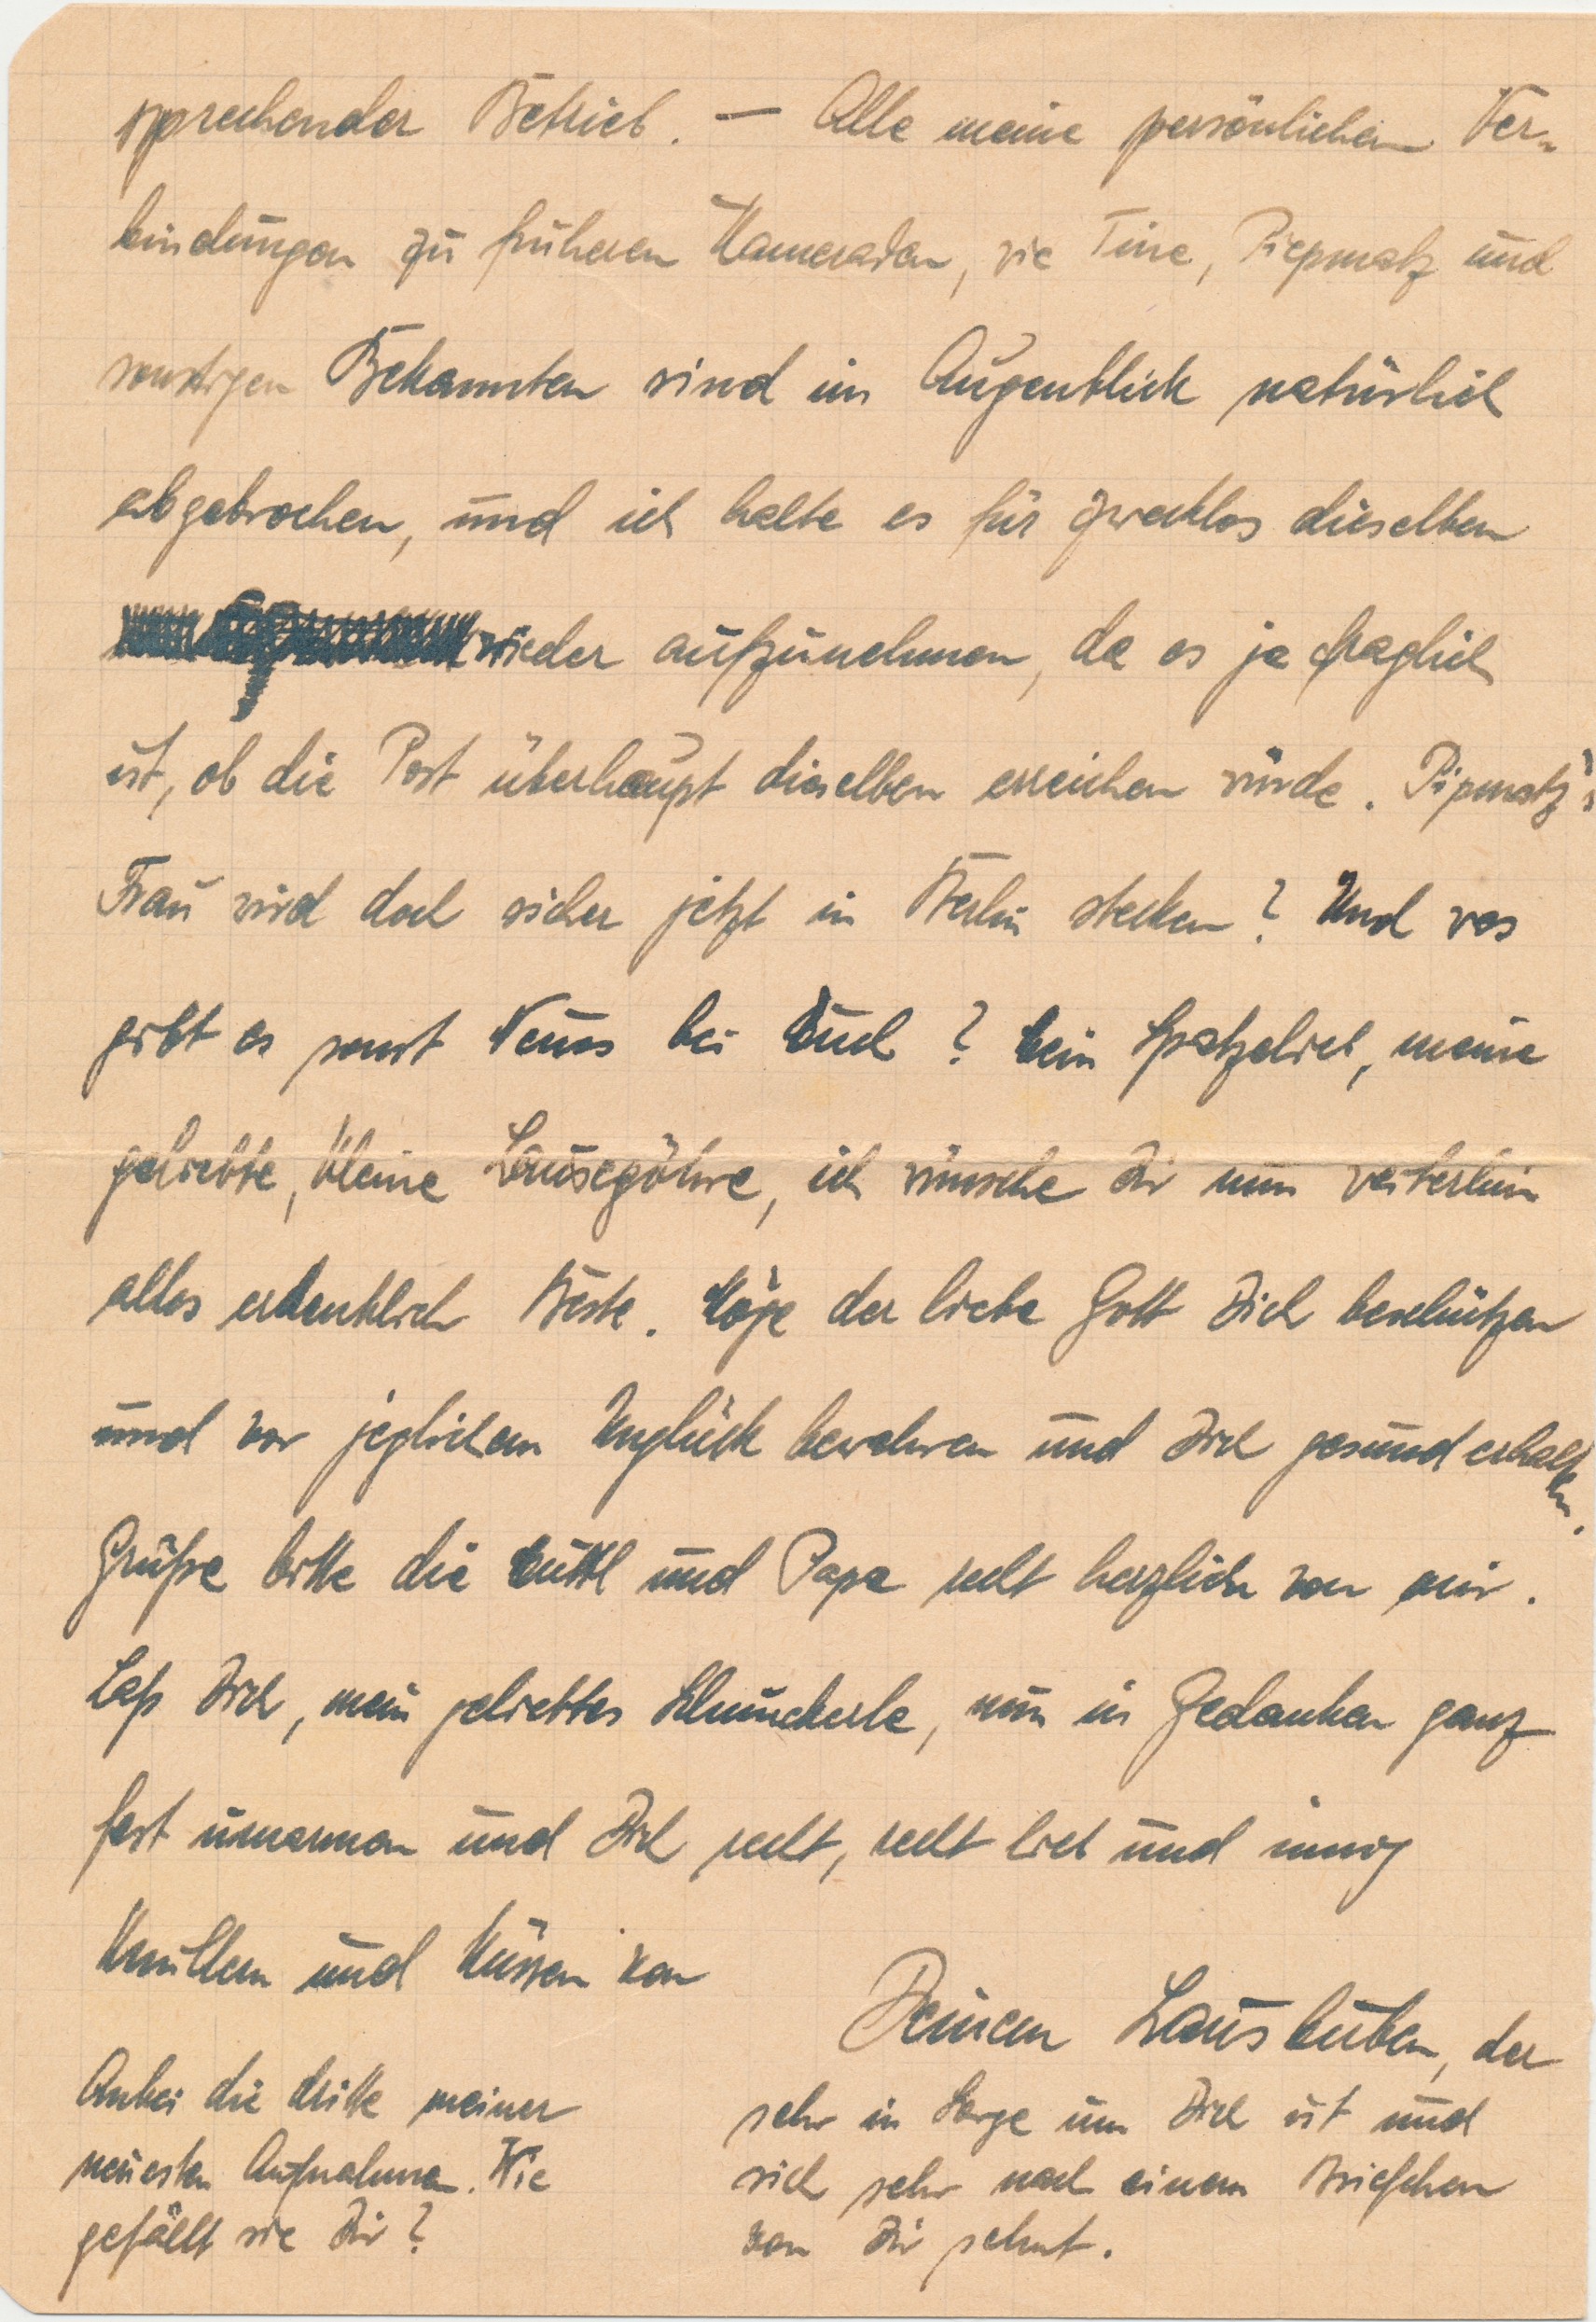 sprechender Betrieb. — Alle meine persönlichen Ver-
bindungen zu früheren Kameraden, wie Tine, Piepmatz und
sonstigen Bekannten sind im Augenblick natürlich
abgebrochen, und ich halte es für zwecklos dieselben
wieder aufzunehmen, da es ja fraglich
ist, ob die Post überhaupt dieselben erreichen würde. Pipmatz's
Frau wird doch sicher jetzt in Berlin stecken? Und was
gibt es sonst Neues bei Euch? Mein Spatzelieb, meine
geliebte, kleine Lausegöhre, ich wünsche Dir nun weiterhin
alles erdenklich Beste. Möge der liebe Gott Dich beschützen
und vor jeglichem Unglück bewahren und Dich gesund erhalten.
Grüße bitte die Mutti und Papa recht herzlich von mir.
Laß Dich, mein geliebtes Schnuckerle, nun in Gedanken ganz
fest umarmen und Dich recht, recht lieb und innig
Knullen und Küssen von
Deinem Lausbuben, der
sehr in Sorge um Dich ist und
sich sehr nach einem Briefchen
von Dir sehnt.
Anbei die dritte meiner
neuesten Aufnahmen. Wie
gefällt sie Dir?